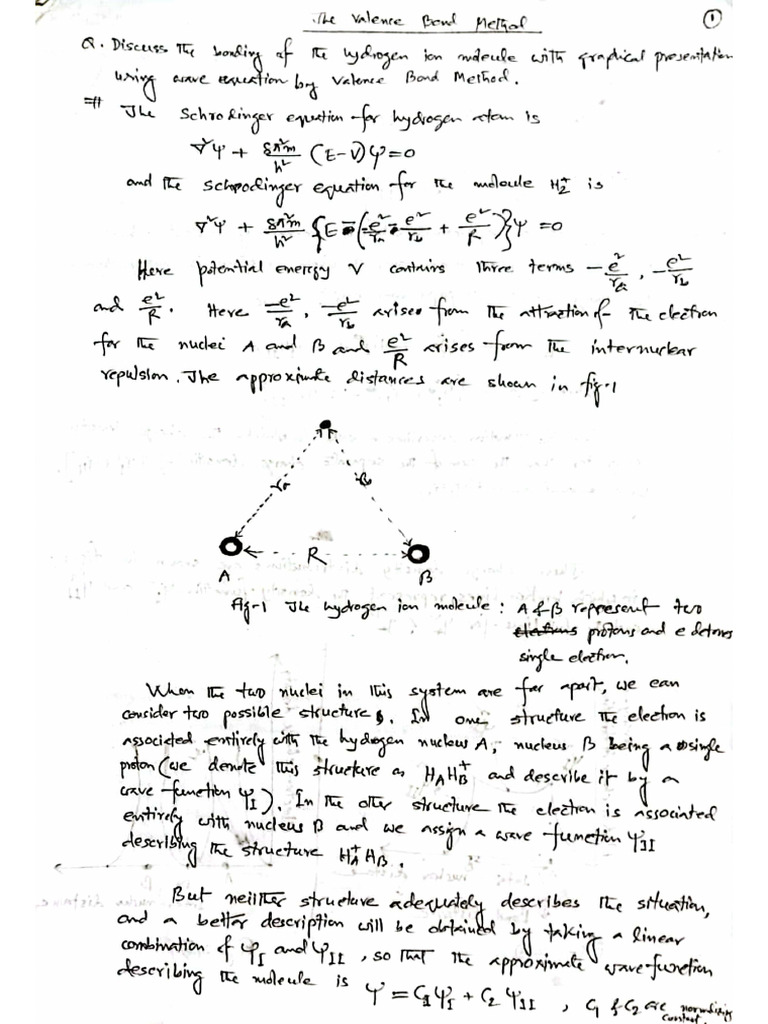 The Valence Bond Method
1
Q. Discuss the bonding of the hydrogen ion molecule with graphical presentation
using wave equation by Valence Bond Method.
⇒ The Schrodinger equation for hydrogen atom is
∇²ψ + 8π²m/h² (E-V)ψ = 0
and the schrodinger equation for the molecule H₂⁺ is
∇²ψ + 8π²m/h² {E - (-e²/rₐ - e²/r_b + e²/R)}ψ = 0
Here potential energy V contains three terms -e²/rₐ, -e²/r_b
and e²/R. Here -e²/rₐ, -e²/r_b arises from the attraction of the electron
for the nuclei A and B and e²/R arises from the internuclear
repulsion. The approximate distances are shown in fig-1
R
A B
Fig-1 The hydrogen ion molecule : A & B represent two
protons and e denotes
single electron.
When the two nuclei in this system are far apart, we can
consider two possible structures. In one structure the electron is
associated entirely with the hydrogen nucleus A, nucleus B being a single
proton (we denote this structure as H_A H_B⁺ and describe it by a
wave function ψ_I). In the other structure the electron is associated
entirely with nucleus B and we assign a wave function ψ_II
describing the structure H_A⁺ H_B.
But neither structure adequately describes the situation,
and a better description will be obtained by taking a linear
combination of ψ_I and ψ_II, so that the approximate wave-function
describing the molecule is ψ = C₁ψ_I + C₂ψ_II , C₁ & C₂ are normalizing
constant.